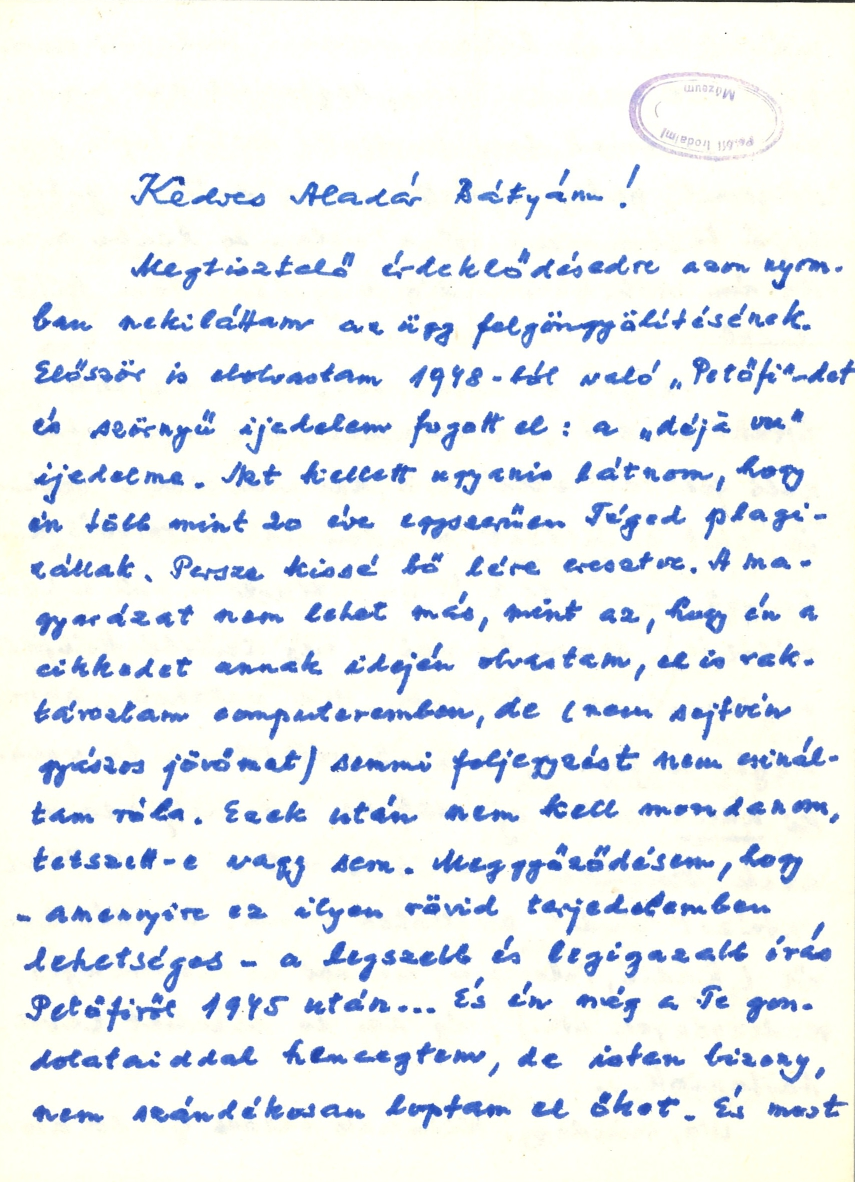 Petőfi Irodalmi
Múzeum
Kedves Aladár Bátyám!
Megtisztelő érdeklődésedre azon nyom-
ban nekiláttam az ügy felgöngyölítésének.
Először is elolvastam 1948-ból való „Petőfi"-det
és szörnyű ijedelem fogott el: a „déjà vu"
ijedelme. Azt kellett ugyanis látnom, hogy
én több mint 20 éve egyszerűen Téged plagi-
zállak. Persze kissé bő lére eresztve. A ma-
gyarázat nem lehet más, mint az, hogy én a
cikkedet annak idején olvastam, el is rak-
tároztam computeremben, de (nem sejtvén
gyászos jövőmet) semmi feljegyzést nem csinál-
tam róla. Ezek után nem kell mondanom,
tetszett-e vagy sem. Meggyőződésem, hogy
- amennyire ez ilyen rövid terjedelemben
lehetséges - a legszebb és legigazabb írás
Petőfiről 1945 után... És én még a Te gon-
dolataiddal hencegtem, de isten bizony,
nem szándékosan loptam el őket. És most